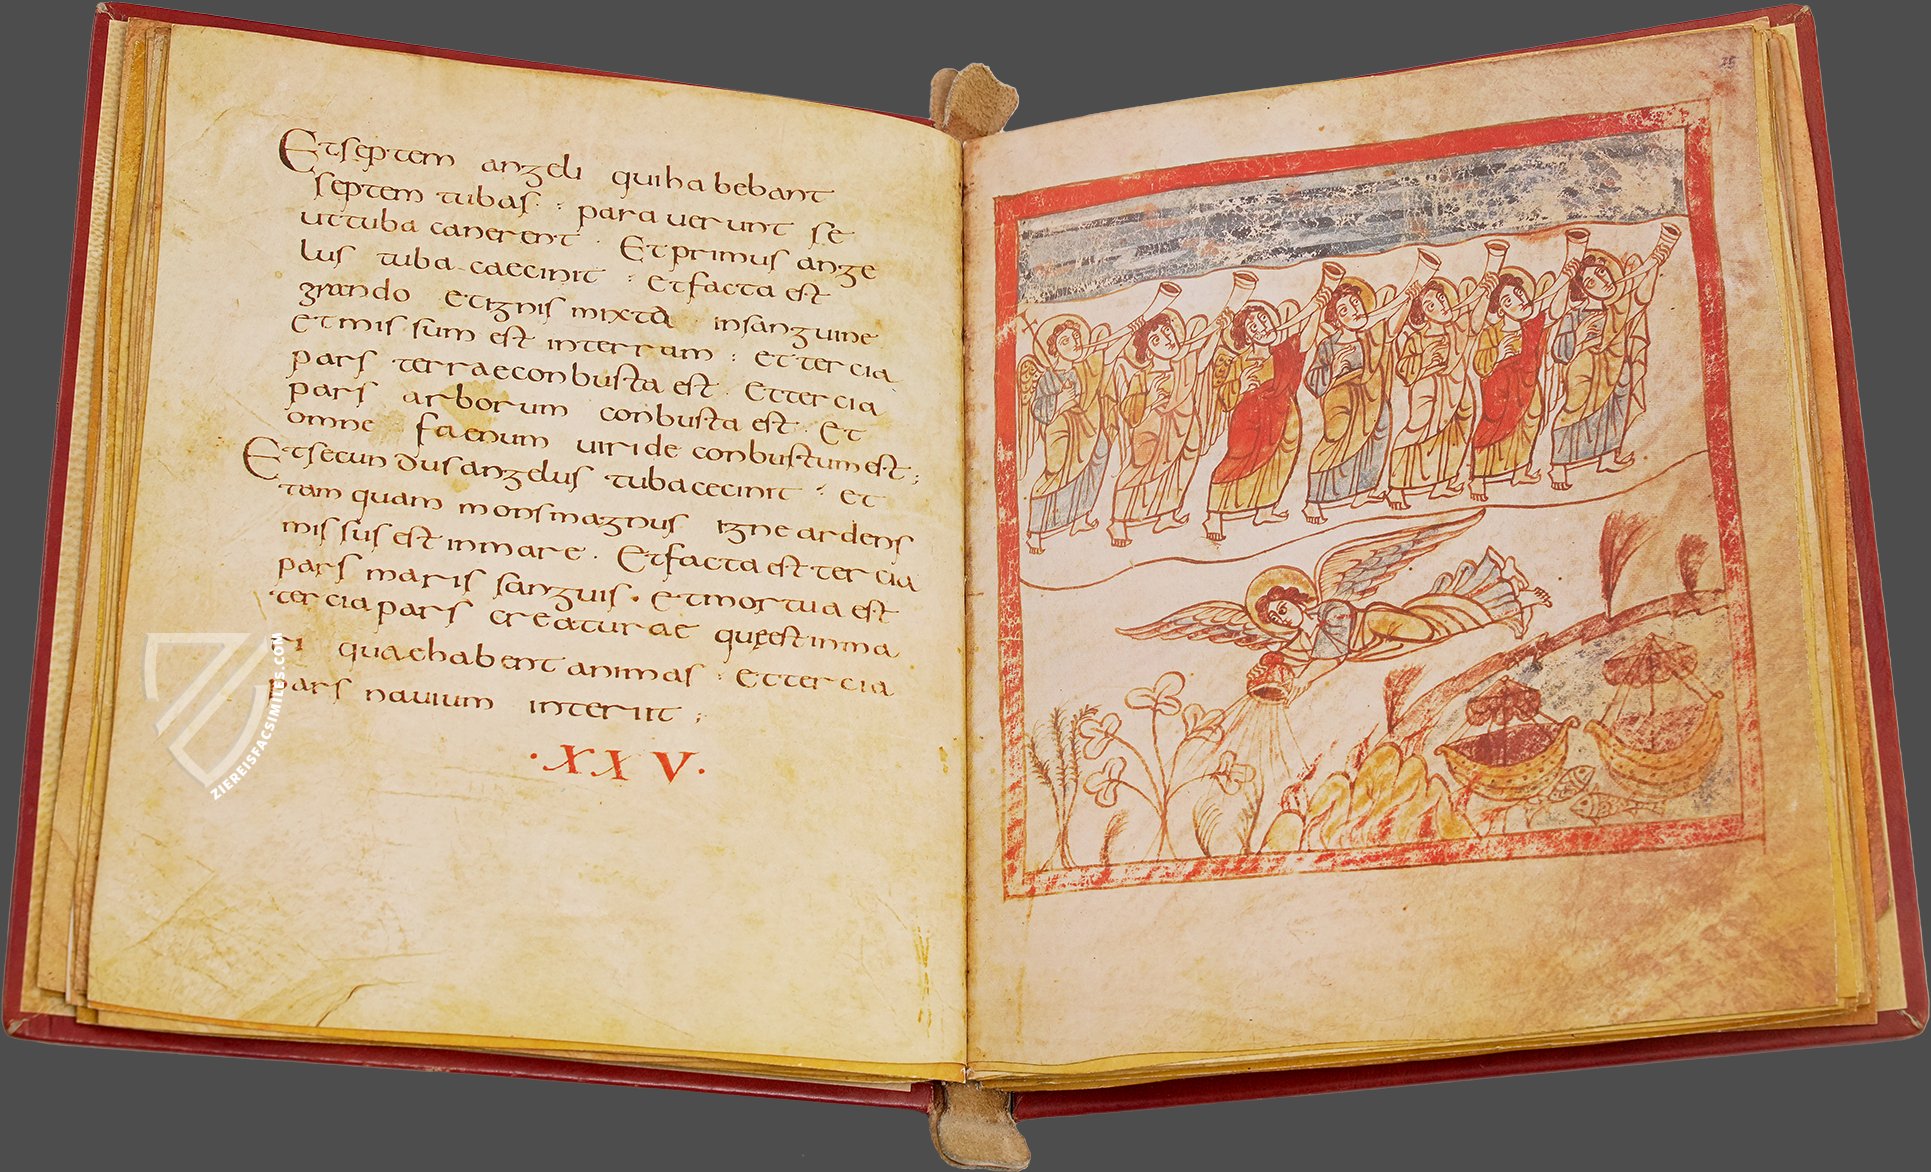 Et septem angeli qui habebant
septem tubas : para uerunt se
ut tuba canerent . Et primus ange
lus tuba caecinit : Et facta est
grando et ignis mixta in sanguine
et missum est in terram : et tercia
pars terrae conbusta est . Et tercia
pars arborum conbusta est . Et
omne faenum uiride conbustum est ;
Et secundus angelus tuba cecinit : et
tam quam mons magnus igne ardens
missus est in mare . Et facta est tercia
pars maris sanguis . et mortua est
tercia pars creaturae quae est in ma
ri quae habent animas : Et tercia
pars nauium interiit ;
·XXV·
ZIEREISFACSIMILES.COM